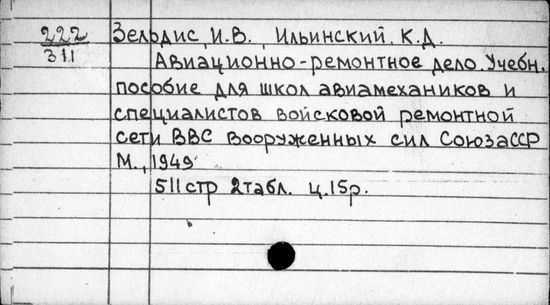 222 Зельдис, И.В., Ильинский, К.Д.
311 Авиационно-ремонтное дело. Учебн.
пособие для школ авиамехаников и
специалистов войсковой ремонтной
сети ВВС вооруженных сил СоюзаССР
М., 1949
511 стр 2табл. ц.15р.